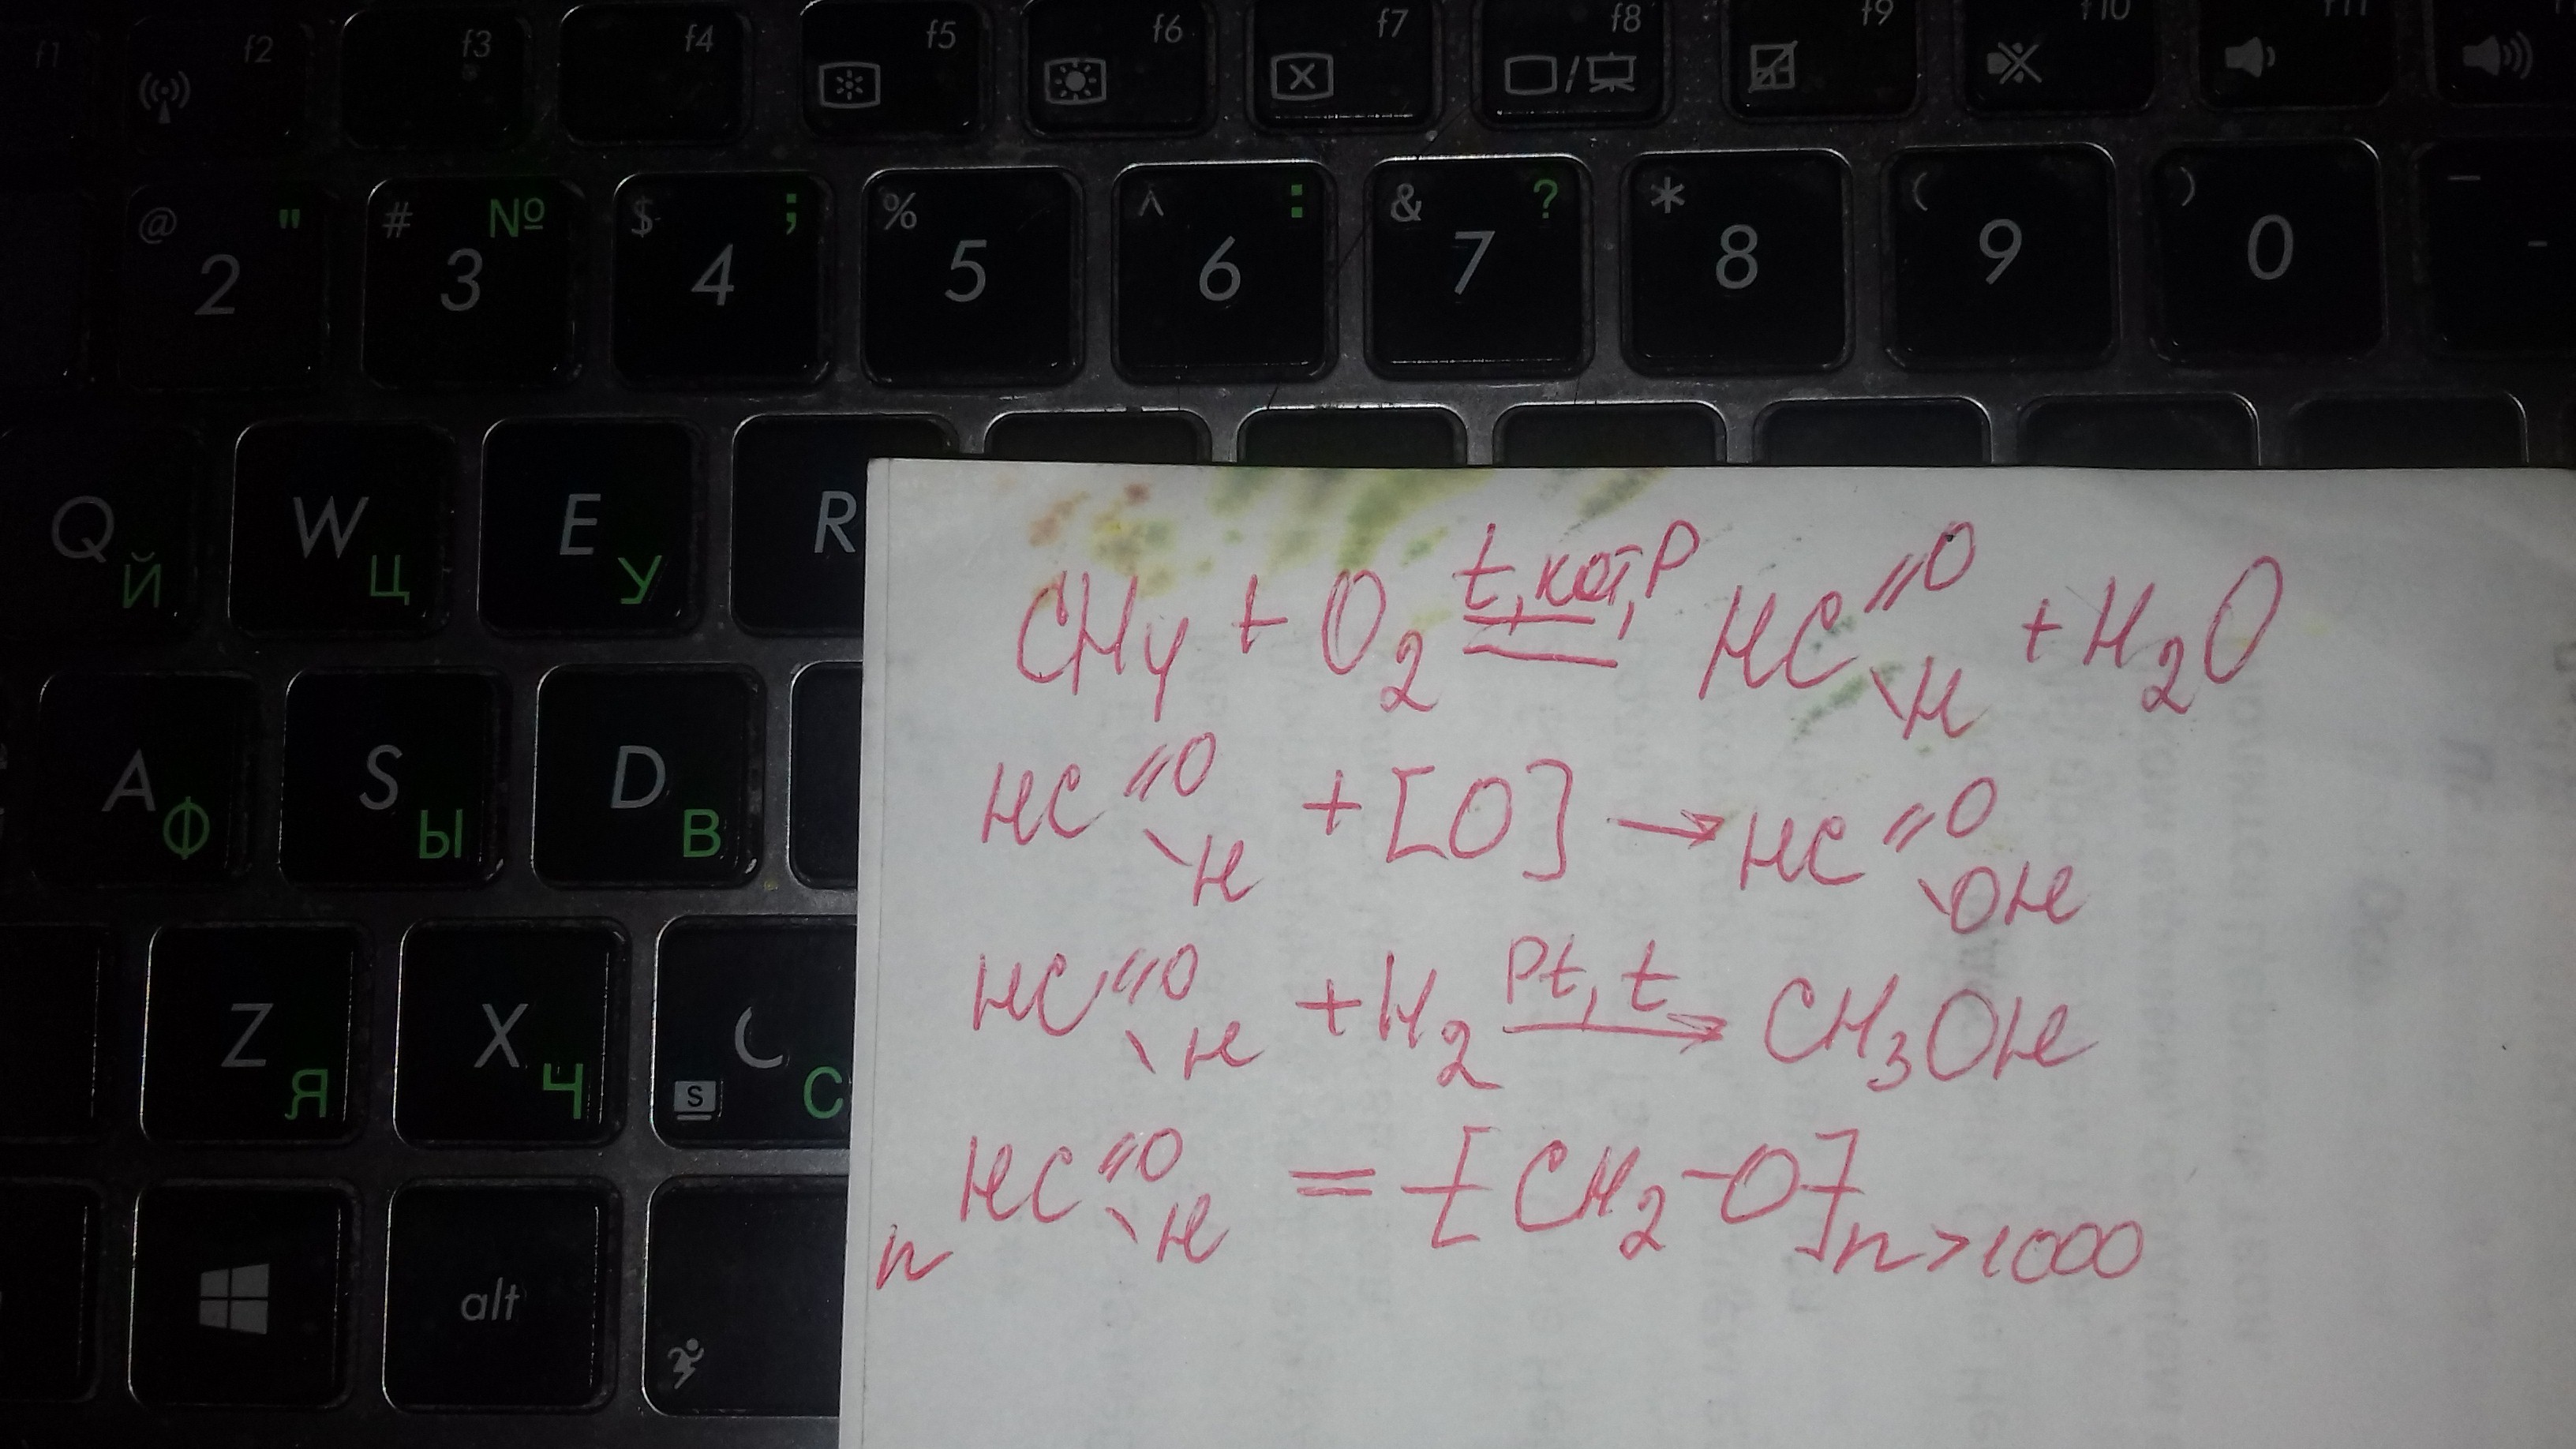 f1 f2 f3 f4 f5 f6 f7 f8 f9 f10 f11
@ " 2 # № 3 $ ; 4 % 5 ^ : 6 & ? 7 * 8 ( 9 ) 0 _ -
Q Й W Ц E У R
A Ф S Ы D В
Z Я X Ч C С S
alt
CH4 + O2 t, кат, P = HC =O \H + H2O
HC =O \H + [O] → HC =O \OH
HC =O \H + H2 Pt, t → CH3OH
n HC =O \H = [CH2-O]n>1000